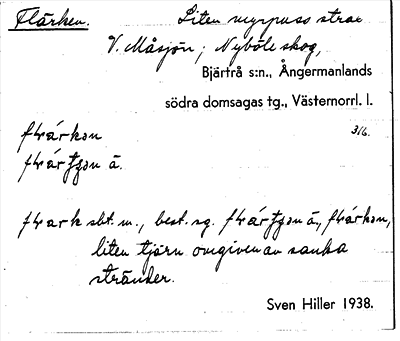 Flärken. Liten myrpuss strax
V. Måsjön, Nyböle skog,
Bjärtrå s:n., Ångermanlands
södra domsagas tg., Västernorrl. l.
3/6.
sbt. m., best. sg.
liten tjärn omgiven av sanka
stränder.
Sven Hiller 1938.